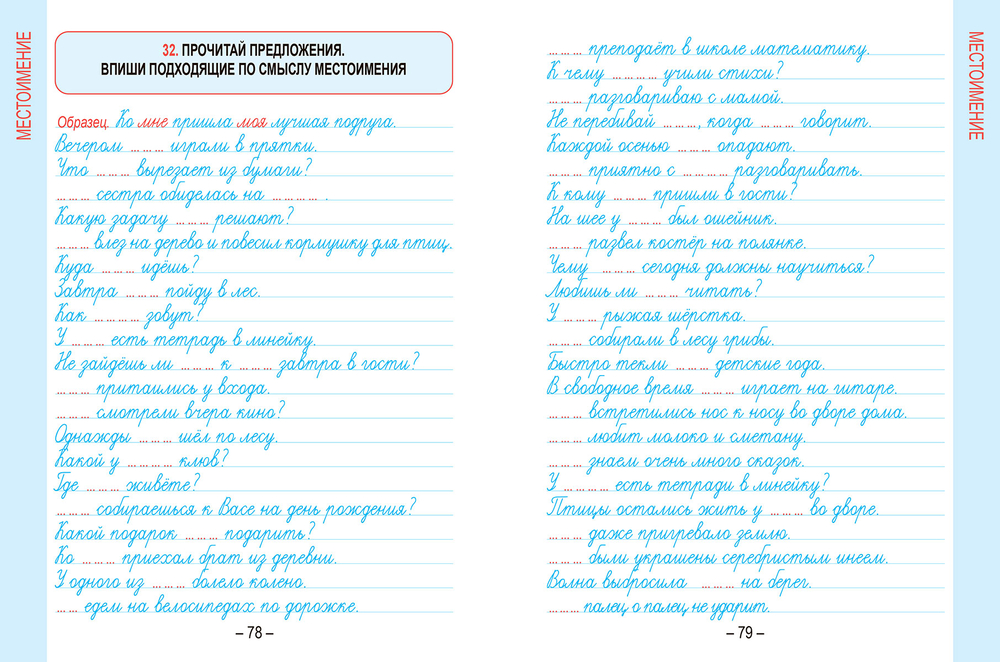 МЕСТОИМЕНИЕ
32. ПРОЧИТАЙ ПРЕДЛОЖЕНИЯ.
ВПИШИ ПОДХОДЯЩИЕ ПО СМЫСЛУ МЕСТОИМЕНИЯ
Образец. Ко мне пришла моя лучшая подруга.
Вечером ... ... ... играли в прятки.
Что ... ... ... вырезает из бумаги?
... ... ... сестра обиделась на ... ... ... ... .
Какую задачу ... ... ... решают?
... ... ... влез на дерево и повесил кормушку для птиц.
Куда ... ... ... идёшь?
Завтра ... ... ... пойду в лес.
Как ... ... ... ... зовут?
У ... ... ... есть тетрадь в линейку.
Не зайдёшь ли ... ... ... к ... ... ... завтра в гости?
... ... ... притаились у входа.
... ... ... смотрели вчера кино?
Однажды ... ... ... шёл по лесу.
Какой у ... ... ... ... клюв?
Где ... ... ... живёте?
... ... ... собираешься к Васе на день рождения?
Какой подарок ... ... ... подарить?
Ко ... ... ... приехал брат из деревни.
У одного из ... ... ... болело колено.
... ... едем на велосипедах по дорожке.
– 78 –
... ... ... преподаёт в школе математику.
К чему ... ... ... ... учили стихи?
... ... ... разговариваю с мамой.
Не перебивай ... ... ..., когда ... ... ... говорит.
Каждой осенью ... ... ... опадают.
... ... ... приятно с ... ... ... ... разговаривать.
К кому ... ... ... пришли в гости?
На шее у ... ... ... был ошейник.
... ... ... развел костёр на полянке.
Чему ... ... ... сегодня должны научиться?
Любишь ли ... ... ... читать?
У ... ... ... рыжая шёрстка.
... ... ... собирали в лесу грибы.
Быстро текли ... ... ... детские года.
В свободное время ... ... ... играет на гитаре.
... ... ... встретились нос к носу во дворе дома.
... ... ... любит молоко и сметану.
... ... ... знаем очень много сказок.
У ... ... ... ... есть тетради в линейку?
Птицы остались жить у ... ... ... во дворе.
... ... ... даже пригревало землю.
... ... ... были украшены серебристым инеем.
Волна выбросила ... ... ... на берег.
... ... ... палец о палец не ударит.
– 79 –
МЕСТОИМЕНИЕ